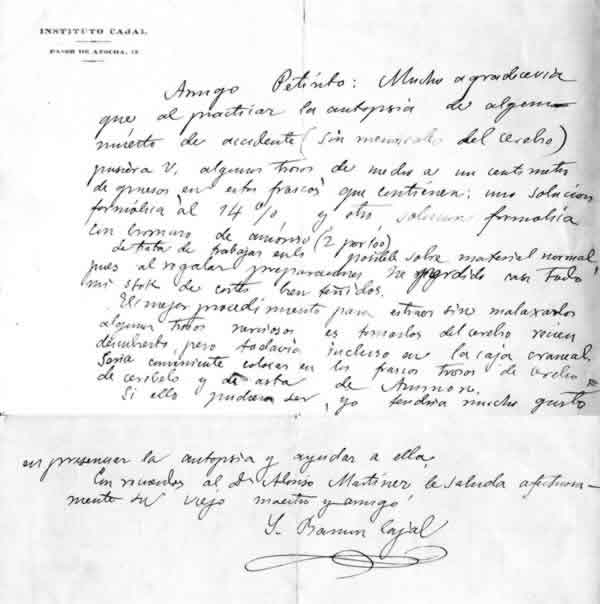 INSTITUTO CAJAL
PASEO DE ATOCHA, 13
Amigo Petinto: Mucho agradeceria
que al practicar la autopsia de algun
muerto de accidente (sin menoscabo del cerebro)
pusiera V. algunos trozos de medio a un centimetro
de grueso en estos frascos que contienen: uno solucion
formólica al 14 % y otro solucion formolica
con bromuro de amonio (2 por 100)
Se trata de trabajar en lo posible sobre material normal,
pues al regalar preparaciones he perdido casi todo
mi stok de cortes bien teñidos.
El mejor procedimiento para extraer sin malaxarlos
algunos trozos nerviosos es tomarlos del cerebro recien
descubierto, pero todavia incluso en la caja craneal.
Seria conveniente colocar en los frascos trozos de cerebro,
de cerebelo y de asta de Ammon.
Si ello pudiera ser, yo tendria mucho gusto
en presenciar la autopsia y ayudar a ella.
Con recuerdos al Dr Alonso Martinez le saluda afectuosa-
mente su viejo maestro y amigo
S. Ramon Cajal